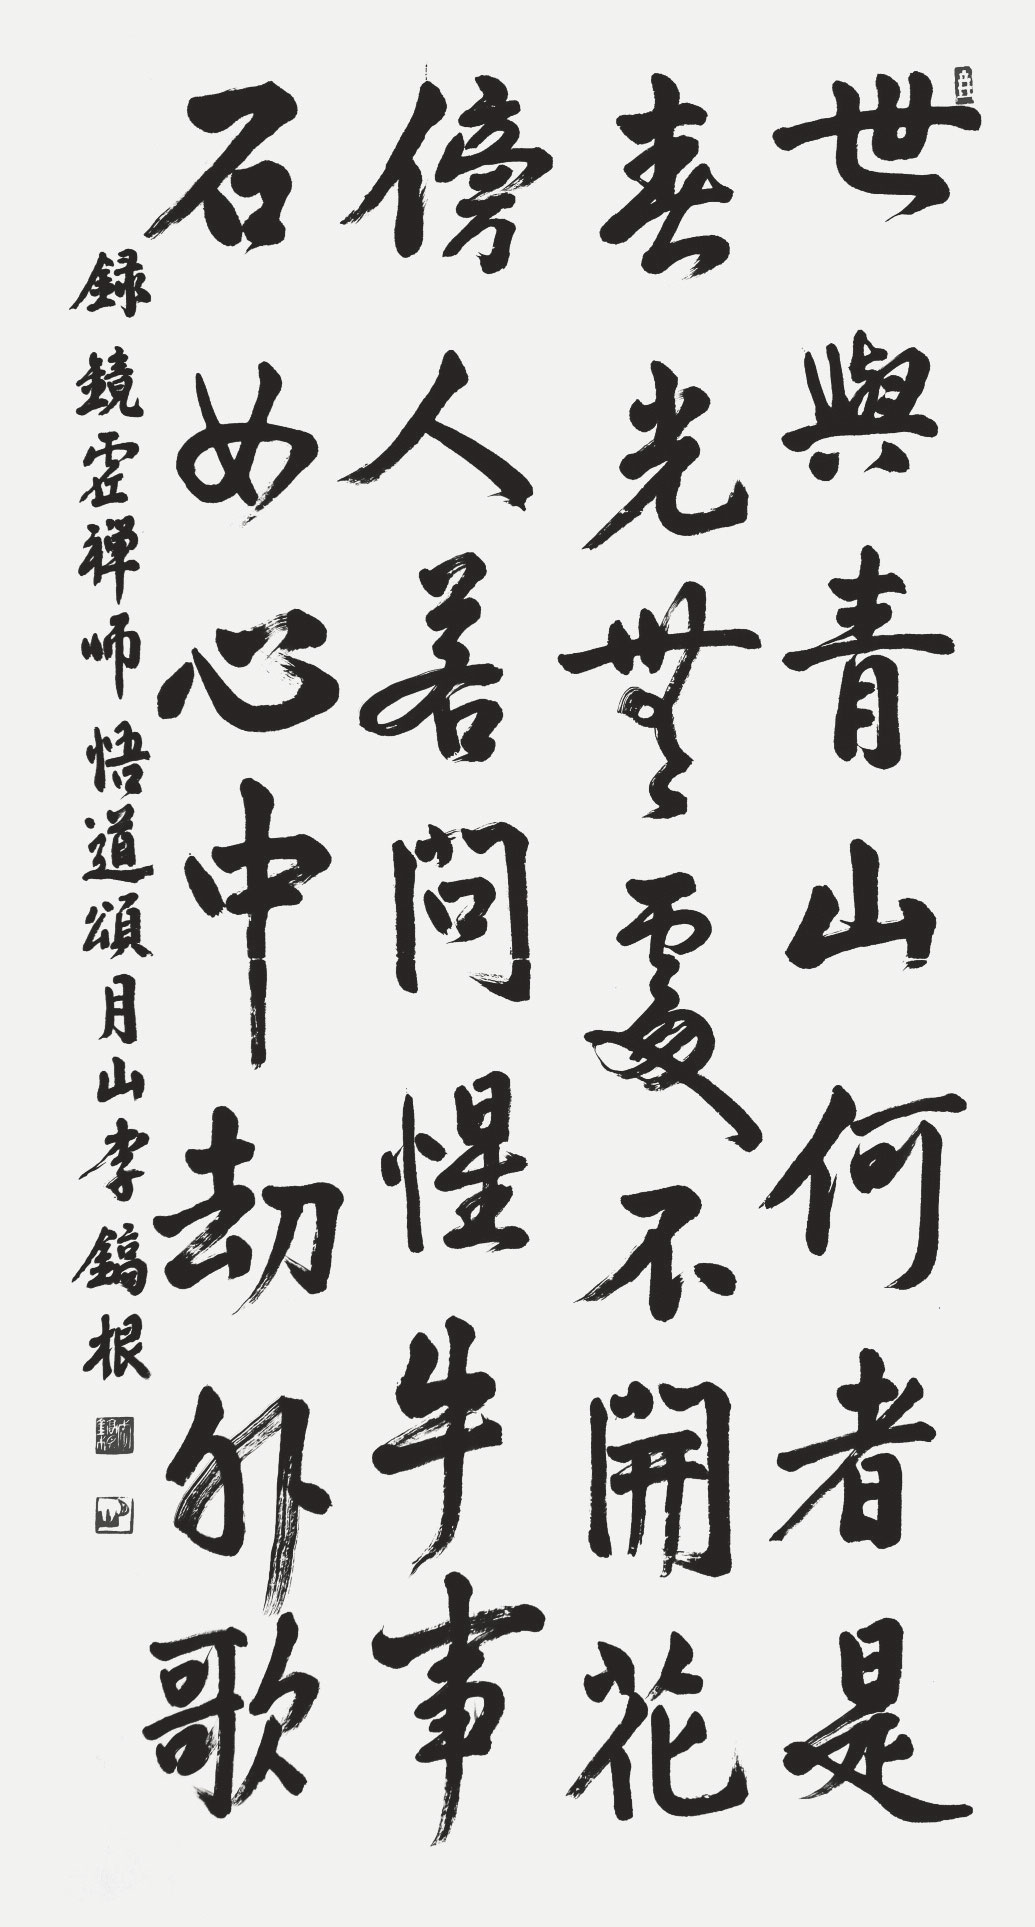 世與青山何者是
春光無處不開花
傍人若問惺牛事
石女心中劫外歌
錄鏡虛禅师悟道頌月山李鎬根